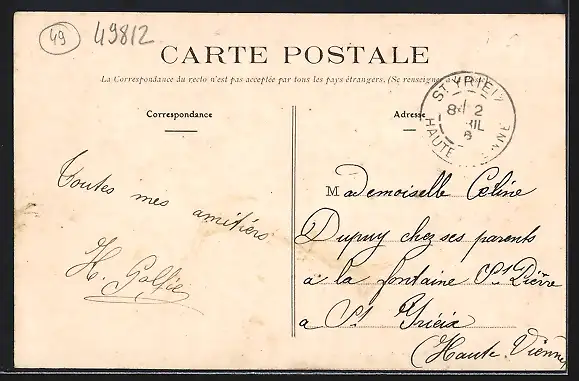 49
49812
CARTE POSTALE
La Correspondance du recto n'est pas acceptée par tous les pays étrangers. (Se renseigner à la Poste)
Correspondance
Adresse
ST YRIEIX
8 2
HAUTE VIENNE
Toutes mes amitiérs
H.
Mademoiselle Celine
Dupuy chez ses parents
a la fontaine St Pierre
a St Yrieix
(Haute Vienne